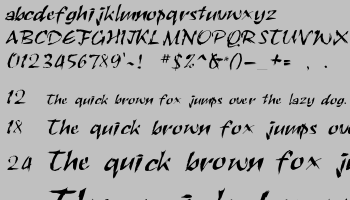 abcdefghijklmnopqrstuvwxyz
ABCDEFGHIJKLMNOPQRSTUVWX
0123456789'~! #$%^&*()-_+=, .
12 The quick brown fox jumps over the lazy dog.
18 The quick brown fox jumps over
24 The quick brown fox